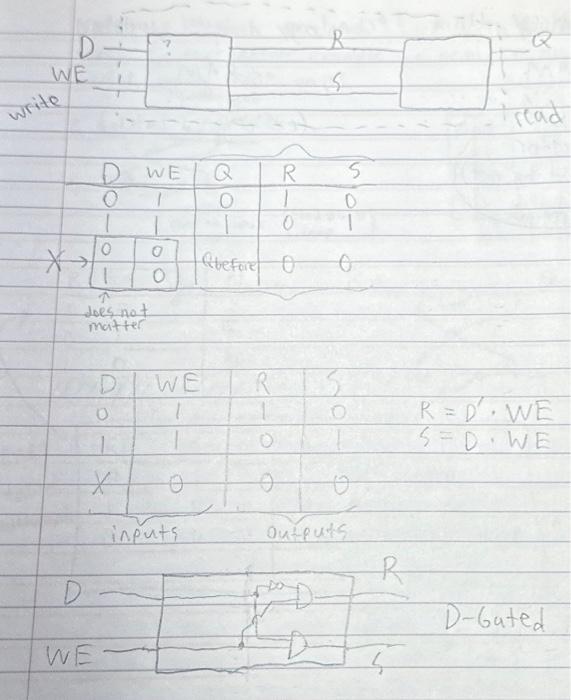 D ? R Q
WE S
write read
D WE Q R S
0 1 0 1 0
1 1 1 0 1
X → 0 0 Qbefore 0 0
1 0
↑
does not
matter
D WE R S
0 1 1 0 R = D' · WE
1 1 0 1 S = D · WE
X 0 0 0
inputs outputs
D R
D-Gated
WE S